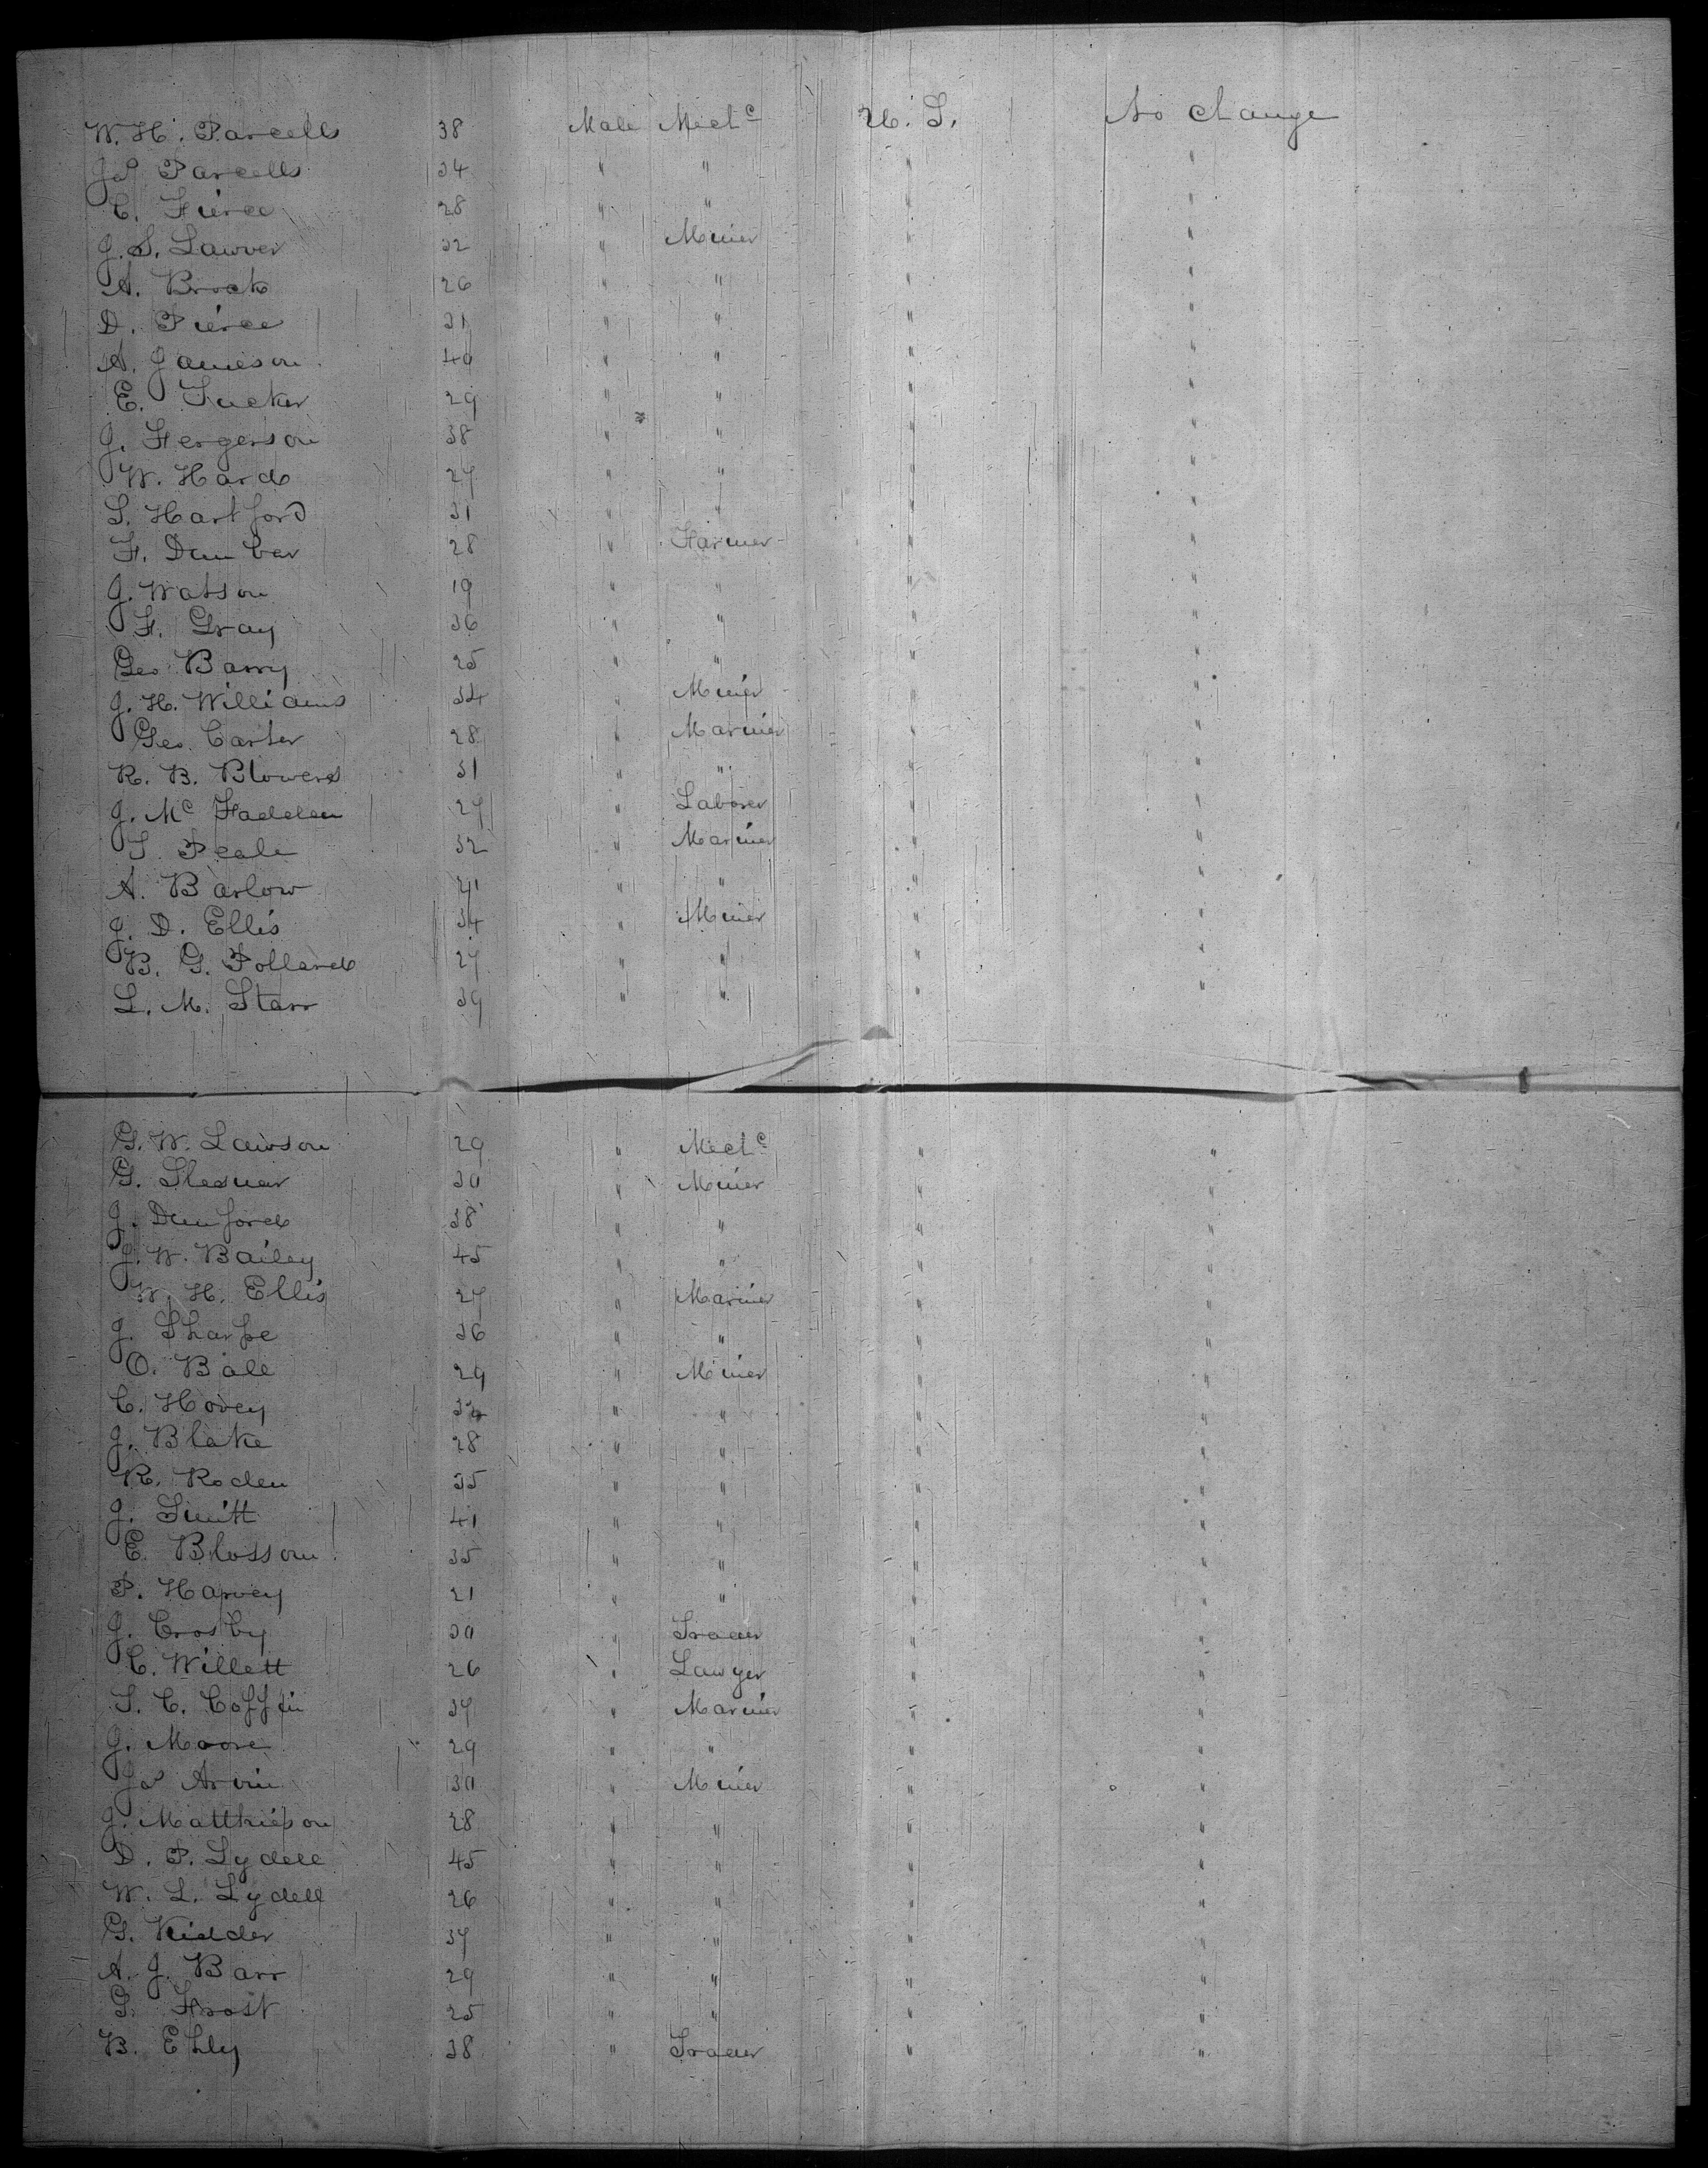 W. H. Parcells 38 Male Mechc U. S. No change
Jas Parcells 34 " " " "
C. Pierce 28 " " " "
J. S. Lawver 32 " Miner " "
A. Brock 26 " " " "
D. Pierce 31 " " " "
A. Jameson 40 " " " "
E. Tucker 29 " " " "
J. Fergerson 38 " " " "
W. Hard 27 " " " "
S. Hartford 31 " " " "
F. Dunbar 28 " Farmer " "
J. Watson 19 " " " "
F. Gray 36 " " " "
Geo Barry 25 " " " "
J. H. Williams 34 " Miner " "
Geo. Carter 28 " Mariner " "
R. B. Blowers 31 " " " "
J. Mc Fadden 27 " Laborer " "
S. Peale 32 " Mariner " "
A. Barlow 41 " " " "
J. D. Ellis 34 " Miner " "
B. G. Pollard 27 " " " "
L. M. Starr 39 " " " "
G. W. Lawson 29 " Mechc " "
G. Slesner 30 " Miner " "
J. Dunford 38 " " " "
J. W. Bailey 45 " " " "
W. H. Ellis 27 " Mariner " "
J. Sharpe 36 " " " "
O. Bale 29 " Miner " "
C. Hovey " " " "
J. Blake 28 " " " "
R. Roden 35 " " " "
J. Smith 41 " " " "
E. Blossom 35 " " " "
P. Harvey 21 " " " "
J. Crosby 30 " Trader " "
C. Willett 26 " Lawyer " "
S. C. Coffin 37 " Mariner " "
J. Moore 29 " " " "
Jas Arvin 30 " Miner " "
J. Matthieson 28 " " " "
D. P. Lydell 45 " " " "
W. L. Lydell 26 " " " "
G. Kidder 37 " " " "
A. J. Barr 29 " " " "
G. Frost 25 " " " "
B. Ehly 38 " Trader " "